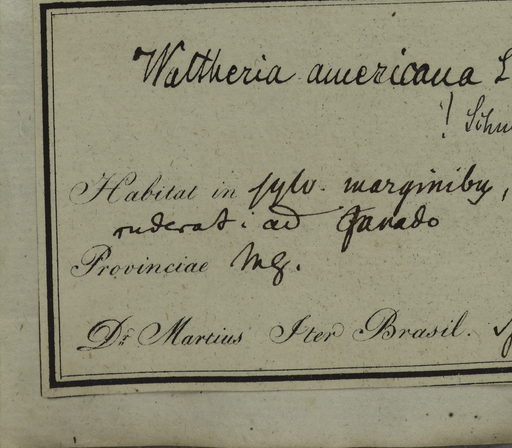 Waltheria americana L
! Schu
Habitat in sylv. marginibus,
ruderat. ad
Provinciae
Dr. Martius Iter Brasil.